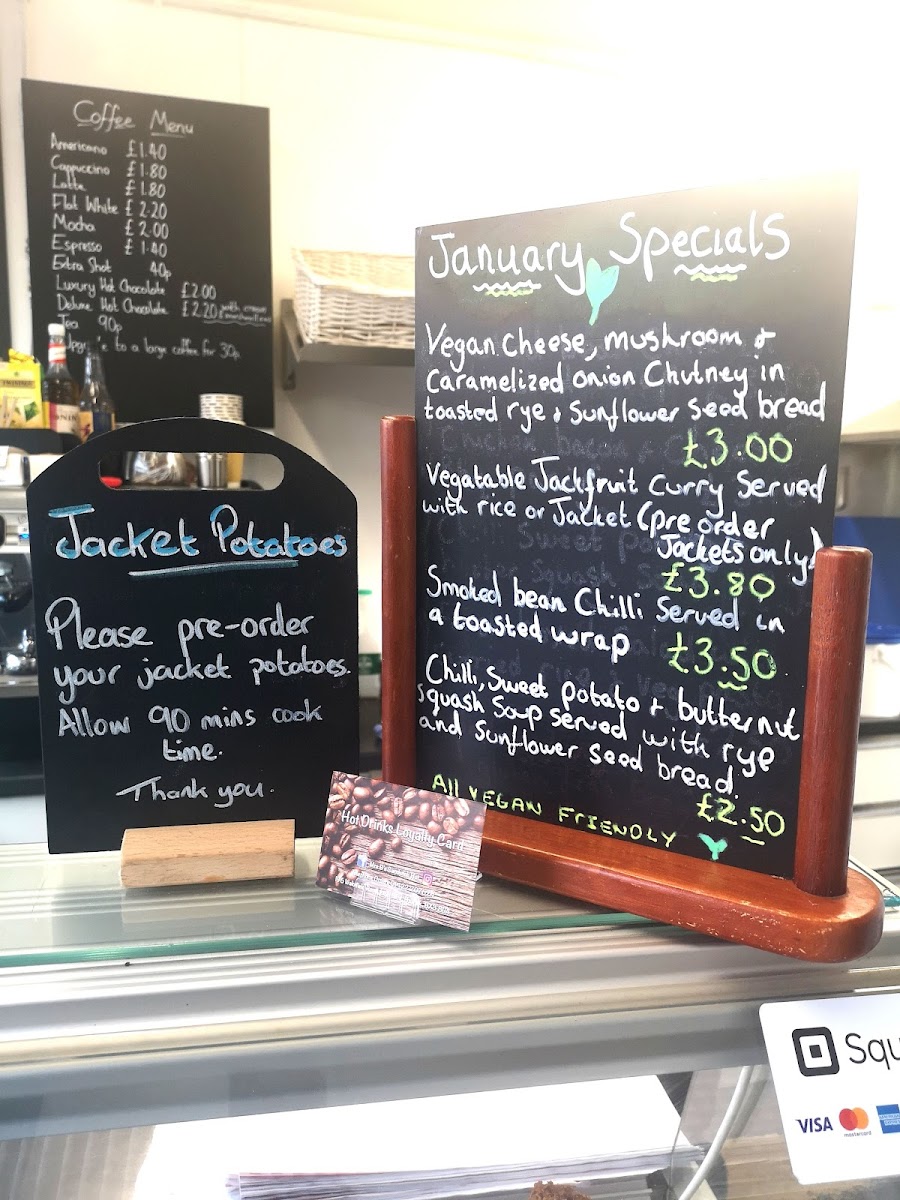 Coffee Menu
Americano £1.40
Cappuccino £1.80
Latte £1.80
Flat White £2.20
Mocha £2.00
Espresso £1.40
Extra Shot 40p
Luxury Hot Chocolate £2.00
Deluxe Hot Chocolate £2.20 with cream
Tea 90p
to a large coffee for 30p
Jacket Potatoes
Please pre-order
your jacket potatoes.
Allow 90 mins cook
time.
Thank you.
January Specials
Vegan Cheese, mushroom +
Caramelized onion Chutney in
toasted rye + Sunflower seed bread
£3.00
Vegatable Jackfruit curry Served
with rice or Jacket (pre order
Jackets only)
£3.80
Smoked bean Chilli Served in
a toasted wrap
£3.50
Chilli, Sweet potato + butternut
Squash Soup served with rye
and Sunflower seed bread.
£2.50
All VEGAN FRIENDLY
Hot Drinks Loyalty Card
Squ
VISA
mastercard